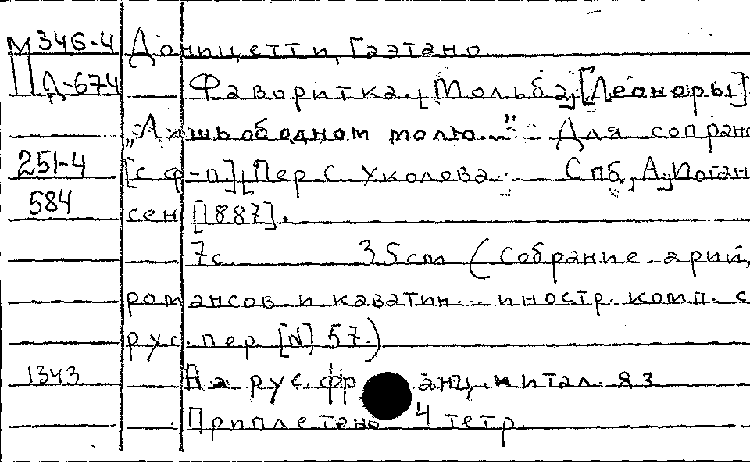 М 346-4 Доницетти, Гаэтано
Д-674 Фаворитка. Мольба [Леоноры]
"Лишь об одном молю..." Для сопрано
251-4 [с ф-п]. Пер С Уколова. Спб, А, Иоган
584 сен [1887].
7с. 35см (Собрание арий,
романсов и каватин иностр. комп. с
рус. пер [N] 57.)
1343 На рус. франц. и итал. яз
Приплетено 4 тетр.